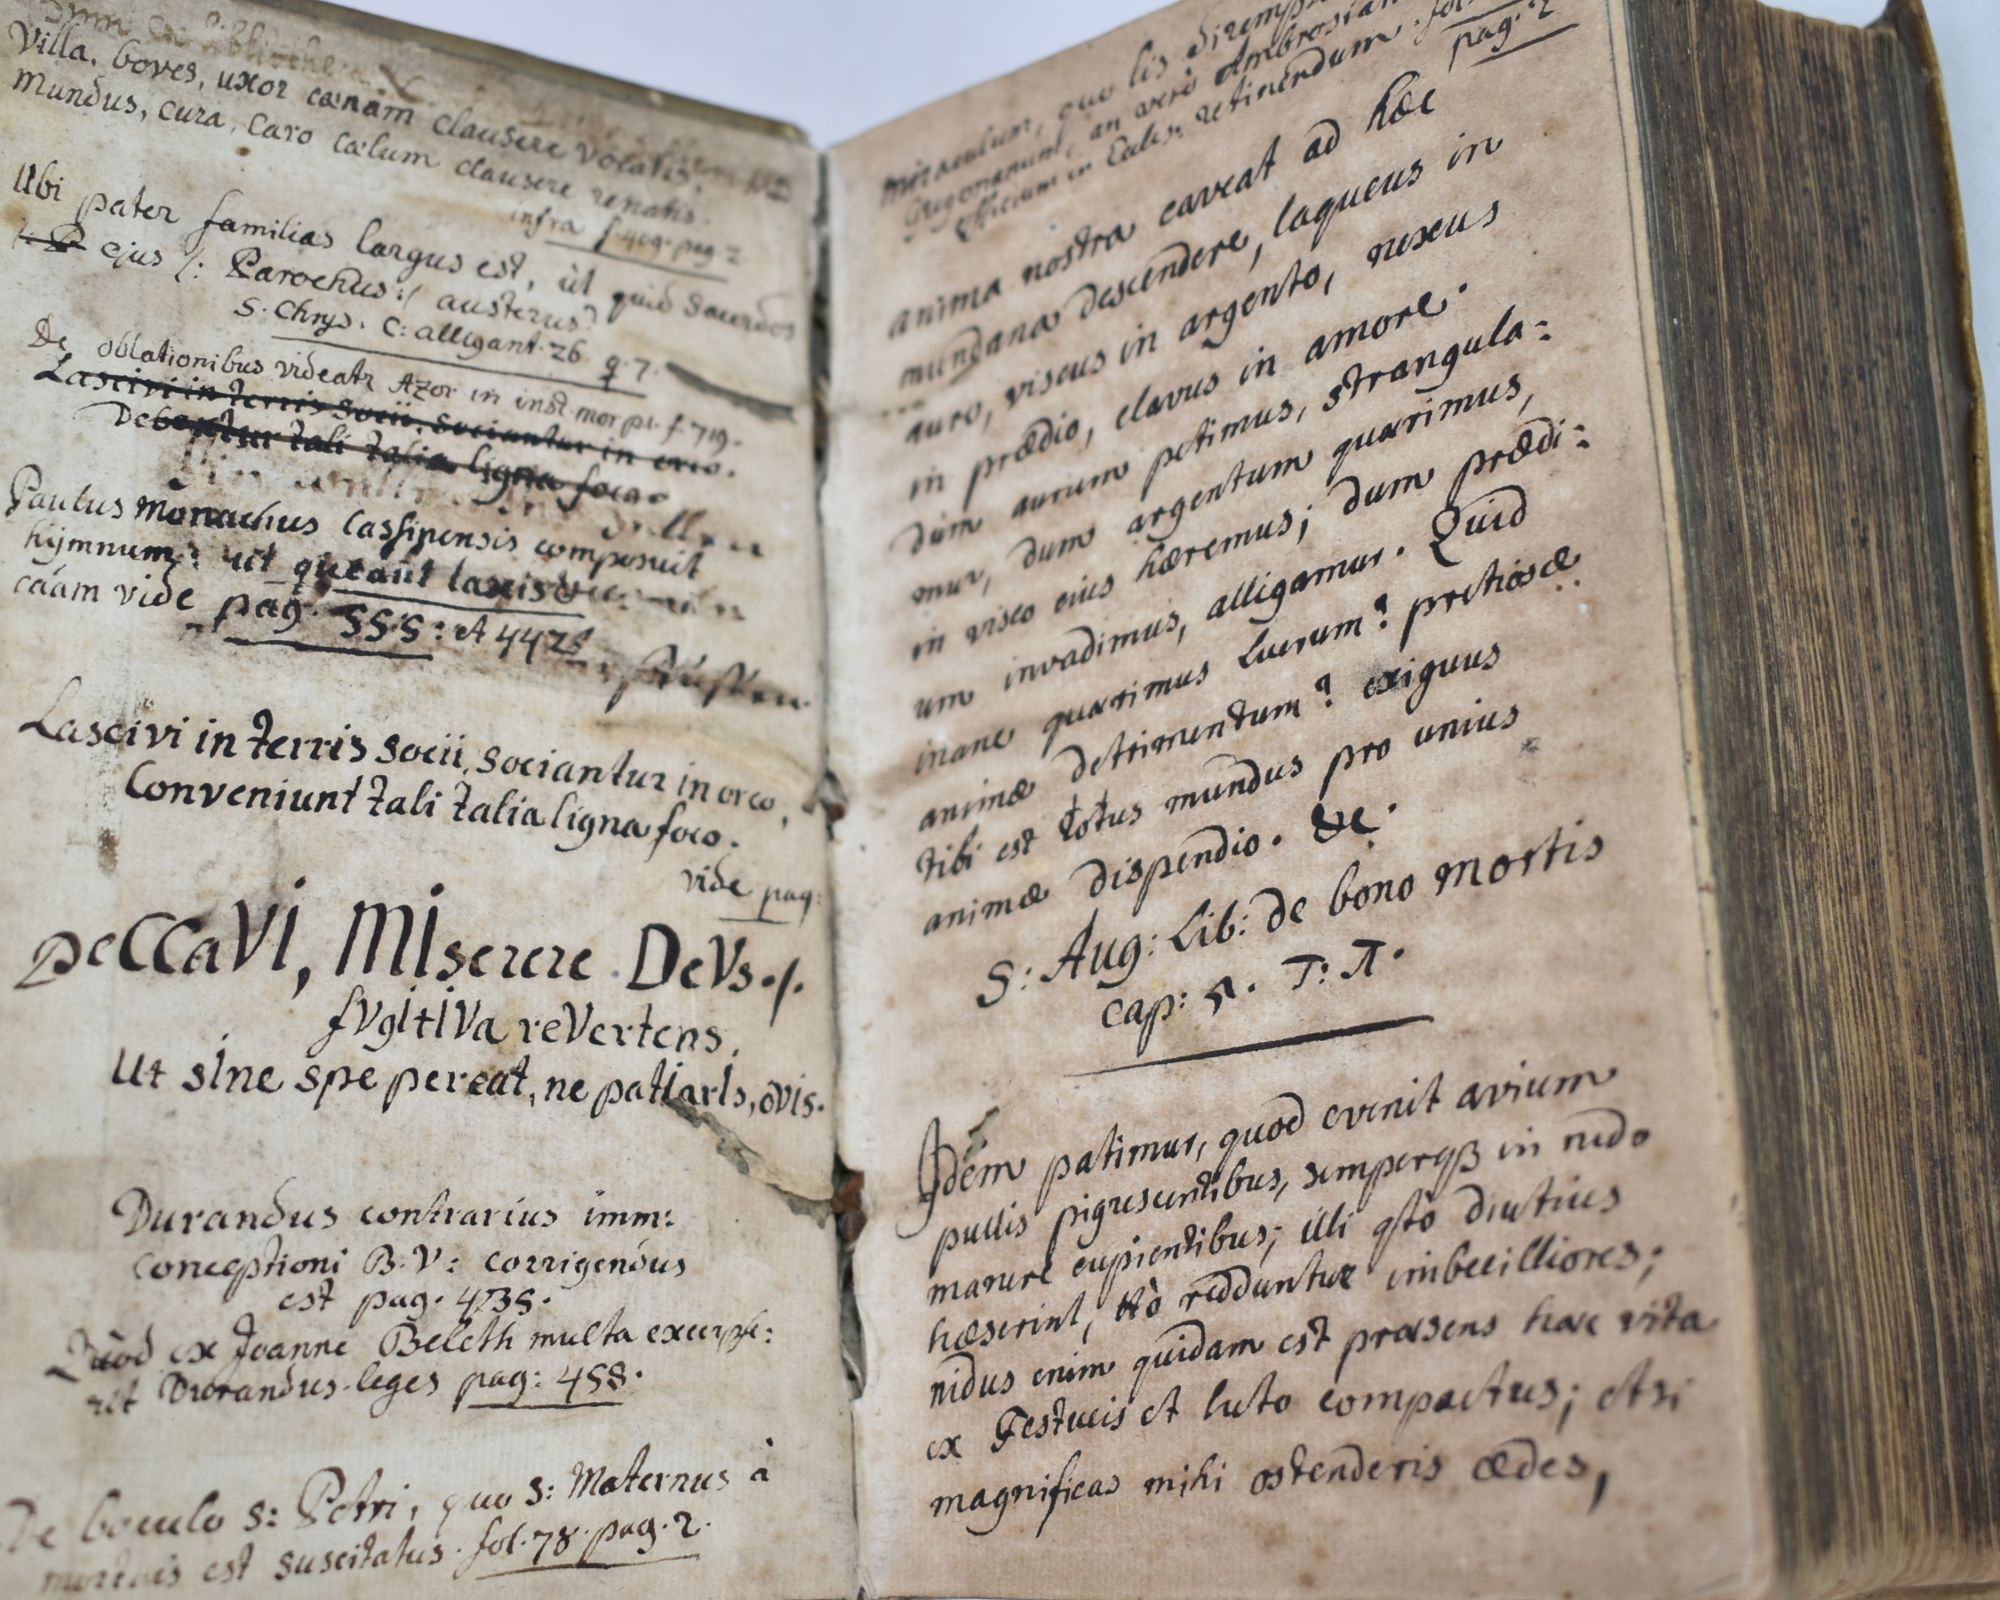 Villa, boves, uxor cœnam clausere vocatis,
Mundus, cura, caro cœlum clausere renatis.
infra f. 409. pag. 2
Ubi pater familias largus est, ut quid Sacerdos
ejus /: Parochus :/ austerus?
S. Chrys. C: alligant. 26. q. 7.
De oblationibus videatr Azor in inst. mor p1. f. 719.
Lascivi in terris socii, sociantur in orco.
Debentur tali talia ligna foco.
Paulus Monachus Cassinensis composuit
hÿmnum: ut queant laxis
caám vide pag. 555: et 442
Lascivi in terris socii, sociantur in orco,
Conveniunt tali talia ligna foco.
vide pag:
PeCCaVI, MIserere DeVs./.
fVgItIVa reVertens,
Ut sIne spe pereat, ne patIarIs, oVis.
Durandus contrarius imm:
Conceptioni B. V: corrigendus
est pag. 4735.
Quòd ex Joanne Beleth multa excerpse:
rit Durandus leges pag: 458.
De baculo S: Petri, quo S: Maternus à
mortuis est suscitatus. fol. 78. pag. 2.
miraculum, quo lis
Gregorianum, an verò Ambrosian
Officium in Eccles: retinendum. fol
pag. 2
anima nostra caveat ad hæc
mundana descendere, laqueus in
auro, viscus in argento, nexus
in prædio, clavus in amore.
Dum aurum petimus, strangula-
mur, dum argentum quærimus,
in visco eius hæremus; dum prædi:
um invadimus, alligamur. Quid
inane quærimus Lucrum? pretiosæ
animæ detrimentum? exiguus
tibi est totus mundus pro unius
animæ dispendio. &c.
S: Aug: Lib: de bono mortis
cap: 5. T: 4.
Idem patimur, quod evenit avium
pullis pigrescentibus, semperqß in nido
manere cupientibus; illi qstò diutius
hæserint, ttò redduntur imbecilliores;
nidus enim quidam est præsens hæc vita
ex Festucis et luto compactus; etsi
magnificas mihi ostenderis ædes,